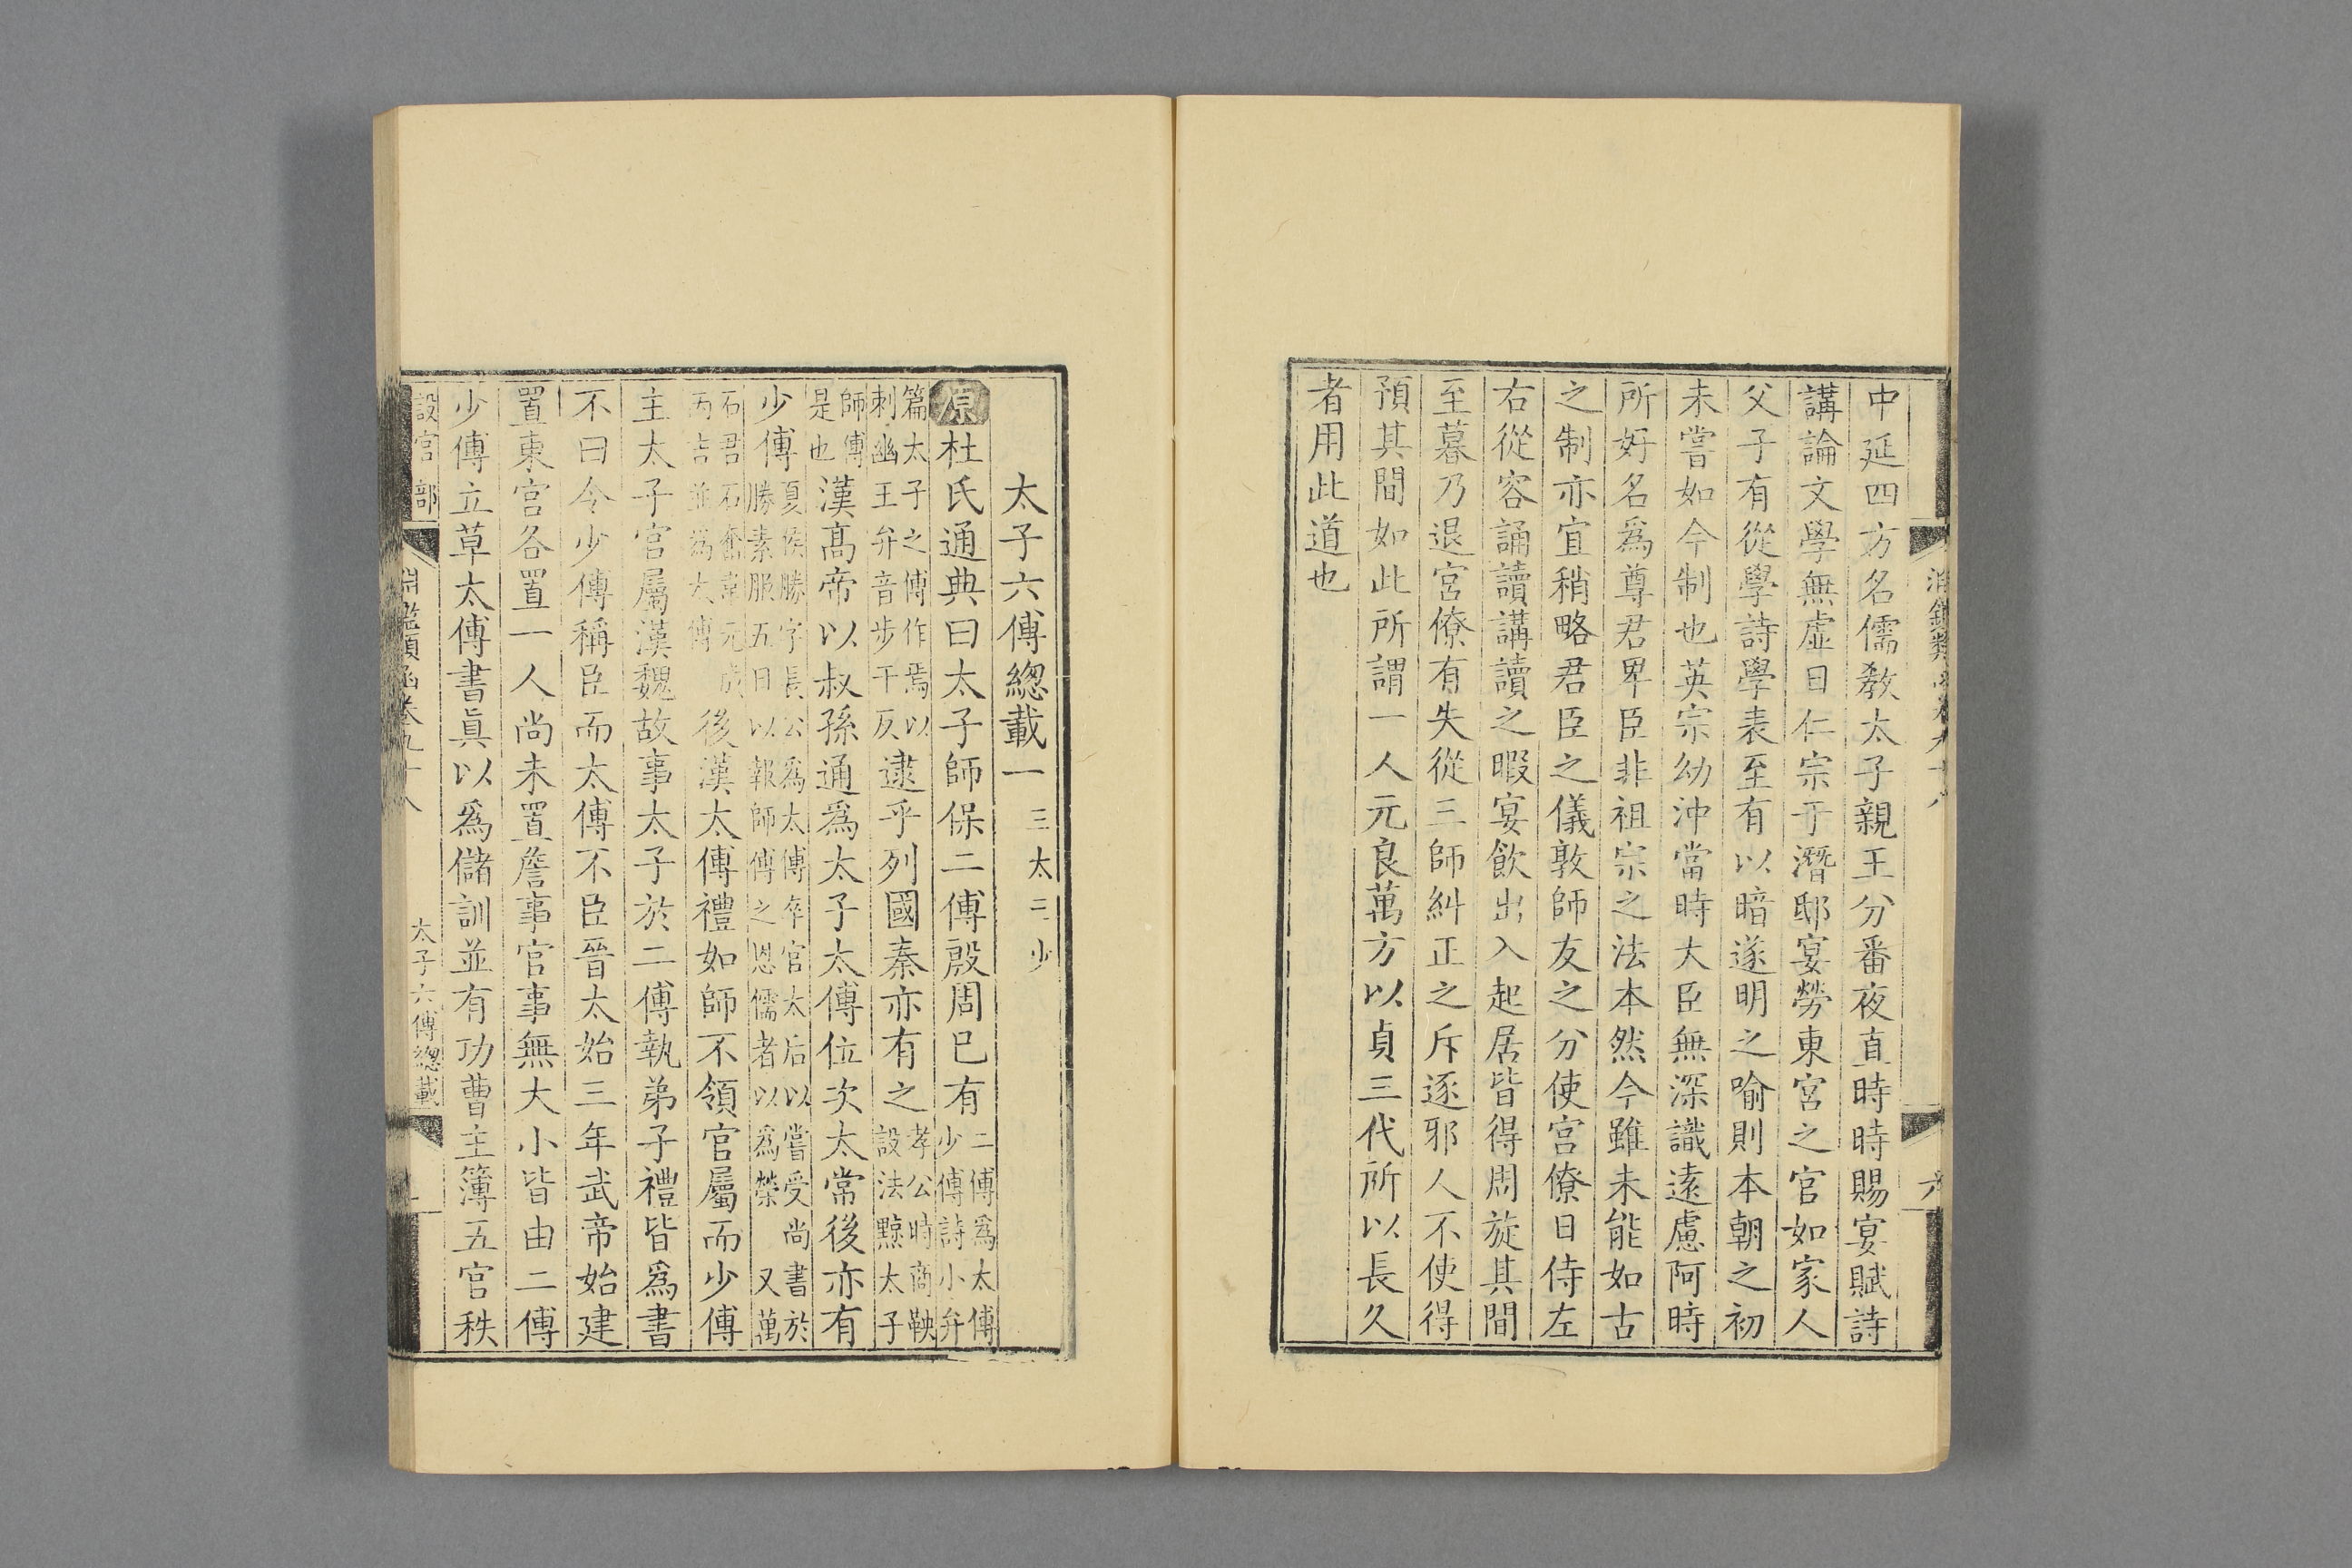 中延四方名儒敎太子親王分番夜直時時賜宴賦詩
講論文學無虛日仁宗于潛邸宴勞東宮之官如家人
父子有從學詩學表至有以暗遂明之喻則本朝之初
未嘗如今制也英宗幼沖當時大臣無深識遠慮阿時
所好名爲尊君卑臣非祖宗之法本然今雖未能如古
之制亦宜稍略君臣之儀敦師友之分使宮僚日侍左
右從容誦讀講讀之暇宴飲出入起居皆得周旋其間
至暮乃退宮僚有失從三師糾正之斥逐邪人不使得
預其間如此所謂一人元良萬方以貞三代所以長久
者用此道也
太子六傅總載一 三太三少
原杜氏通典曰太子師保二傅殷周已有二傅爲太傅少傅詩小弁
篇太子之傅作焉以刺幽王弁音步干反逮乎列國秦亦有之孝公時商鞅設法黥太子
師傅是也漢髙帝以叔孫通爲太子太傅位次太常後亦有
少傅夏侯勝字長公爲太傅卒官太后以嘗受尚書於勝素服五日以報師傅之恩儒者以爲榮又萬
石君石奮韋元成丙吉並爲太傅後漢太傅禮如師不領官屬而少傅
主太子官屬漢魏故事太子於二傅執弟子禮皆爲書
不曰令少傅稱臣而太傅不臣晉太始三年武帝始建
置東宮各置一人尚未置詹事官事無大小皆由二傅
少傅立草太傅書眞以爲儲訓並有功曹主簿五官秩
設官部 淵鑑類函卷九十八 太子六傅總載